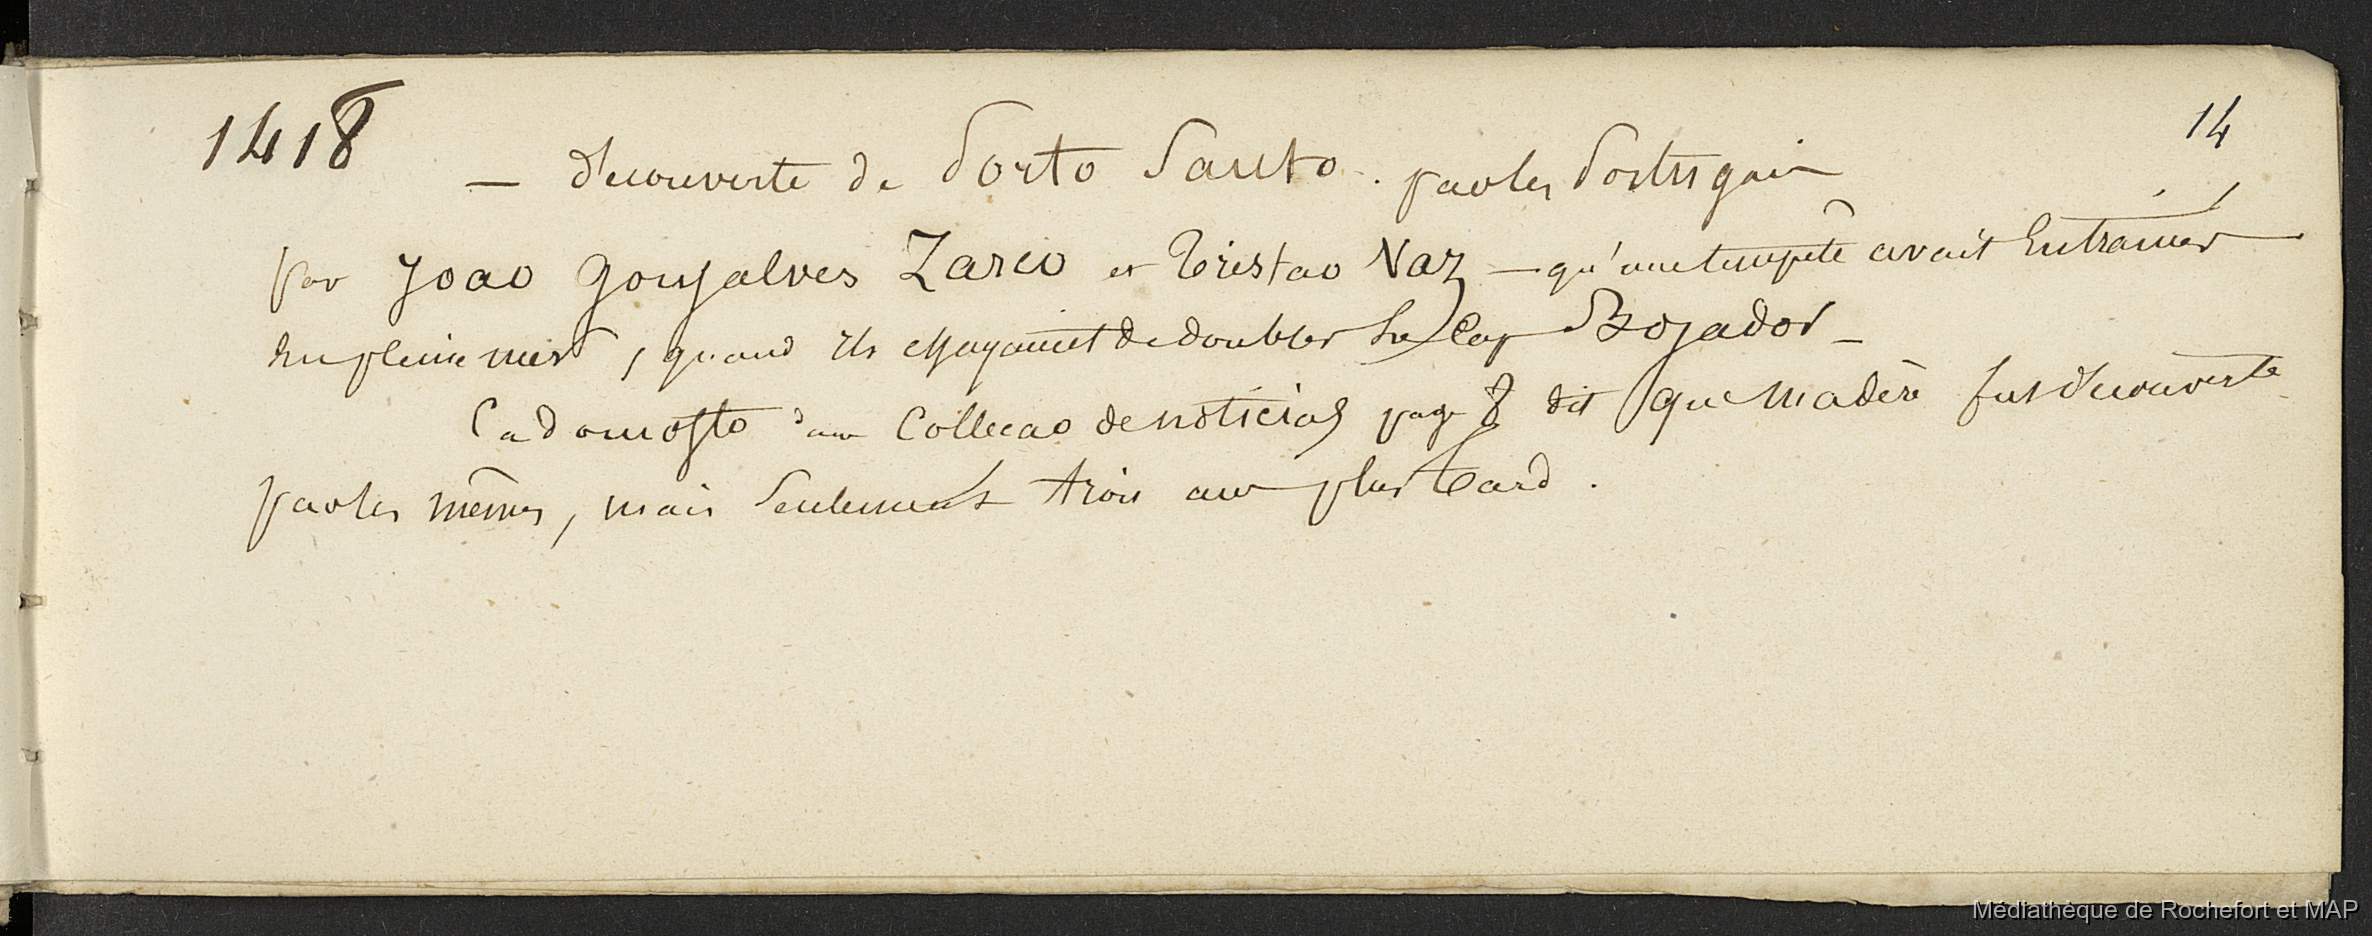 14
1418 — découverte de Porto Santo. par les Portugais
par Joao Gonsalves Zarco et Tristao Vaz — qu'une tempête avait Entrainés
En pleine mer, quand ils essayaient de doubler le Cap Bojador —
Cadomosto dans Collecao de noticias page 8 dit que Madère fut découverte
par les mêmes, mais seulement trois ans plus tard.
Médiathèque de Rochefort et MAP